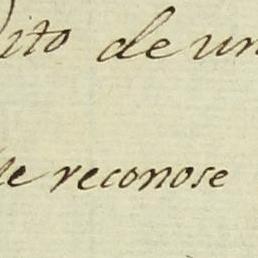 ito de un
e reconose